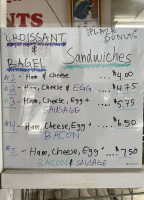 NTS
CROISSANT
&
BAGEL
PLAZA
DONUTS
Sandwiches
#1 - Ham & cheese ... $4.00
#2 - Ham, Cheese & EGG ... $4.75
#3 - Ham, Cheese, Egg +
SAUSAGE ... $5.75
#4 - Ham, Cheese, Egg +
BACON ... $6.50
#5 - Ham, Cheese, Egg +
BACON & SAUSAGE ... $7.50